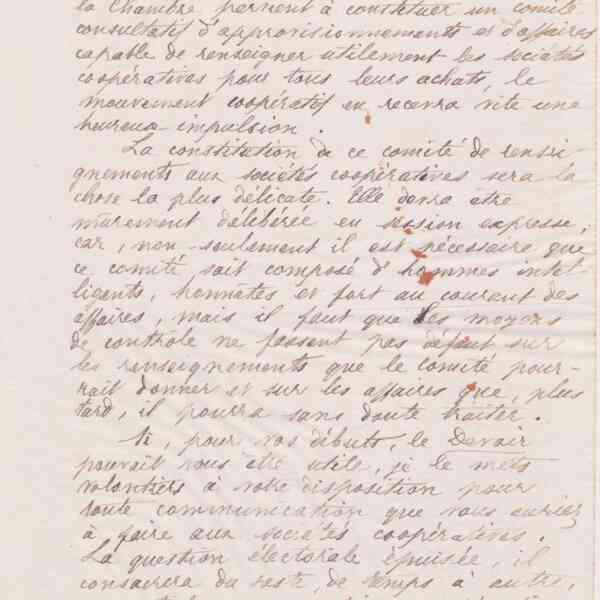 la Chambre parvient à constituer un comité
consultatif d'approvisionnements et d'affaires
capable de renseigner utilement les sociétés
coopératives pour tous leurs achats, le
mouvement coopératif en recevra vite une
heureuse impulsion.
La constitution de ce comité de rensei-
gnements aux sociétés coopératives sera la
chose la plus délicate. Elle devra être
mûrement délibérée en session expresse,
car, non-seulement il est nécessaire que
ce comité soit composé d'hommes intel-
ligents, honnêtes et fort au courant des
affaires, mais il faut que les moyens
de contrôle ne fassent pas défaut sur
les renseignements que le comité pour-
rait donner et sur les affaires que, plus
tard, il pourra sans doute traiter.
Si, pour vos débuts, le Devoir
pouvait vous être utile, je le mets
volontiers à votre disposition pour
toute communication que vous auriez
à faire aux sociétés coopératives.
La question électorale épuisée, il
consacrera du reste, de temps à autre,